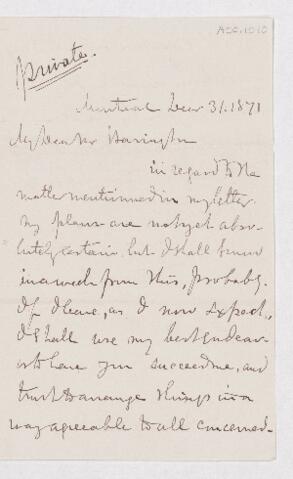 private.
Montreal Decr 31. 1871
My Dear Mr Barington
in regard to the
matter mentioned in my letter
my plans are not yet abso-
lutely certain but I shall know
in a week from this, probably.
If I leave, as I now expect,
I shall use my best endeav-
or to have you succeed me, and
trust to arrange things in a
way agreeable to all concerned.